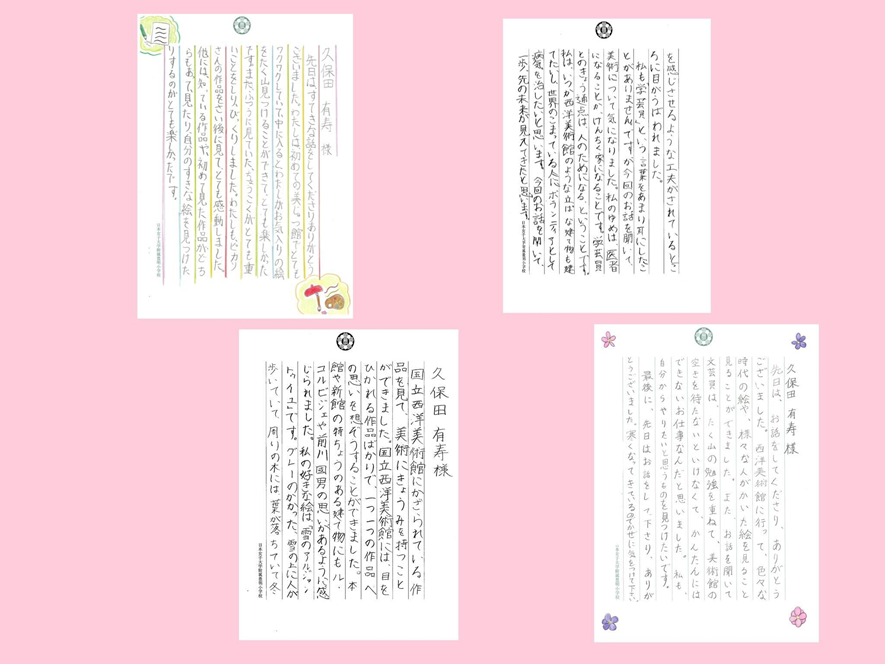 久保田 有寿 様
先日は、すてきな品をしてくださりありがとう
ございました。わたしは、初めての美じゅつ館でとても
ワクワクしていて、中に入るとわたしがお気入りの絵
をたく山見つけることができて、とても楽しかった
です。またふつうに見ていた、ちょうこくがとても重
いことをしり、びっくりしました。わたしも、ピカソ
さんの作品をさい後に見て、とても感動しました。
他には、知っている作品や、初めて見た作品がどち
らもあって、見たり、自分のすきな絵を見つけた
りするのがとても楽しかったです。
日本女子大学附属豊明小学校
を感じさせるような工夫がされているとこ
ろに目がうばわれました。
私も「学芸員」という言葉をあまり耳にしたこ
とがありませんですが今回のお話を聞いて、
美術について気になりました。私のゆめは、医者
になることか、けんちく家になることです。学芸員
とのきょう通点は、人のためになる、ということです。
私は、いつか西洋美術館のような立ぱな建て物も建
てたいし、世界のこまっている人に、ボランティアとして
病気を治したいと思います。今回のお話を聞いて、
一歩、先の未来が見えてきたと思います。
日本女子大学附属豊明小学校
久保田 有寿 様
国立西洋美術館にかざられている作
品を見て、美術にきょうみを持つこと
ができました。国立西洋美術館には、目を
ひかれる作品ばかりで、一つ一つの作品へ
の思いを想ぞうすることができました。本
館や新館の特ちょうのある建て物にもル・
コルビジェや前川 國男の思いがあるように感
じられました。私の好きな絵は、「雪のアルジャン
トゥイユ」です。グレーのかかった、雪の上に人が
歩いていて、周りの木には、葉が落ちていて冬
日本女子大学附属豊明小学校
久保田 有寿 様
先日は、お話をしてくださり、ありがとう
ございました。西洋美術館に行って、色々な
時代の絵や、様々な人がかいた絵を見ること
見ることができました。また、お話を聞いて
文芸員は、たく山の勉強を重ねて、美術館の
空きを待たないといけなくて、かんたんには
できないお仕事なんだと思いました。私も、
自分からやりたいと思うものを見つけたいです。
最後に、先日はお話をして下さり、ありが
とうございました。寒くなってきているのでかぜに気をつけて下さい。
日本女子大学附属豊明小学校